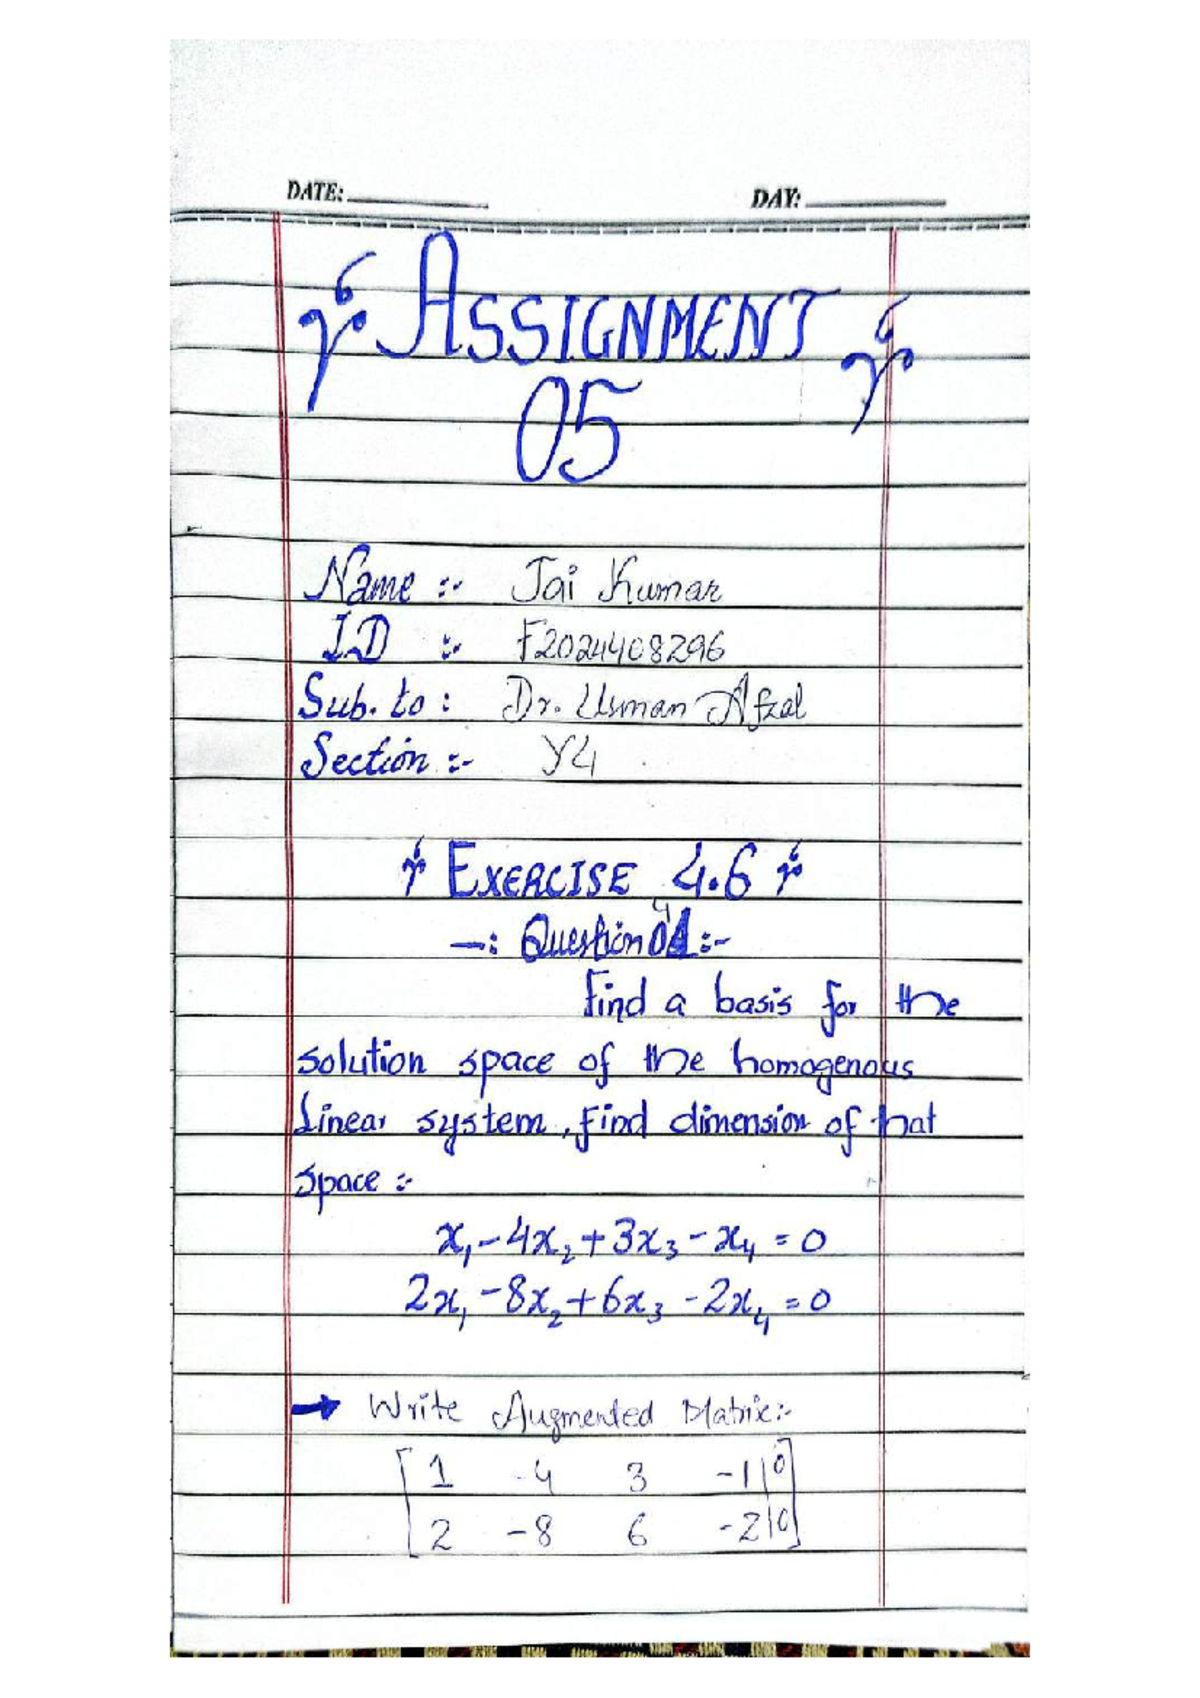 DATE: DAY:
ASSIGNMENT
05
Name :- Jai Kumar
ID :- F2024408296
Sub. to : Dr. Usman Afzal
Section :- Y4
EXERCISE 4.6
—: Question 04 :-
Find a basis for the
solution space of the homogenous
Linear system, find dimension of that
space :-
x₁ - 4x₂ + 3x₃ - x₄ = 0
2x₁ - 8x₂ + 6x₃ - 2x₄ = 0
→ Write Augmented Matrix:-
[ 1 -4 3 -1 | 0 ]
[ 2 -8 6 -2 | 0 ]